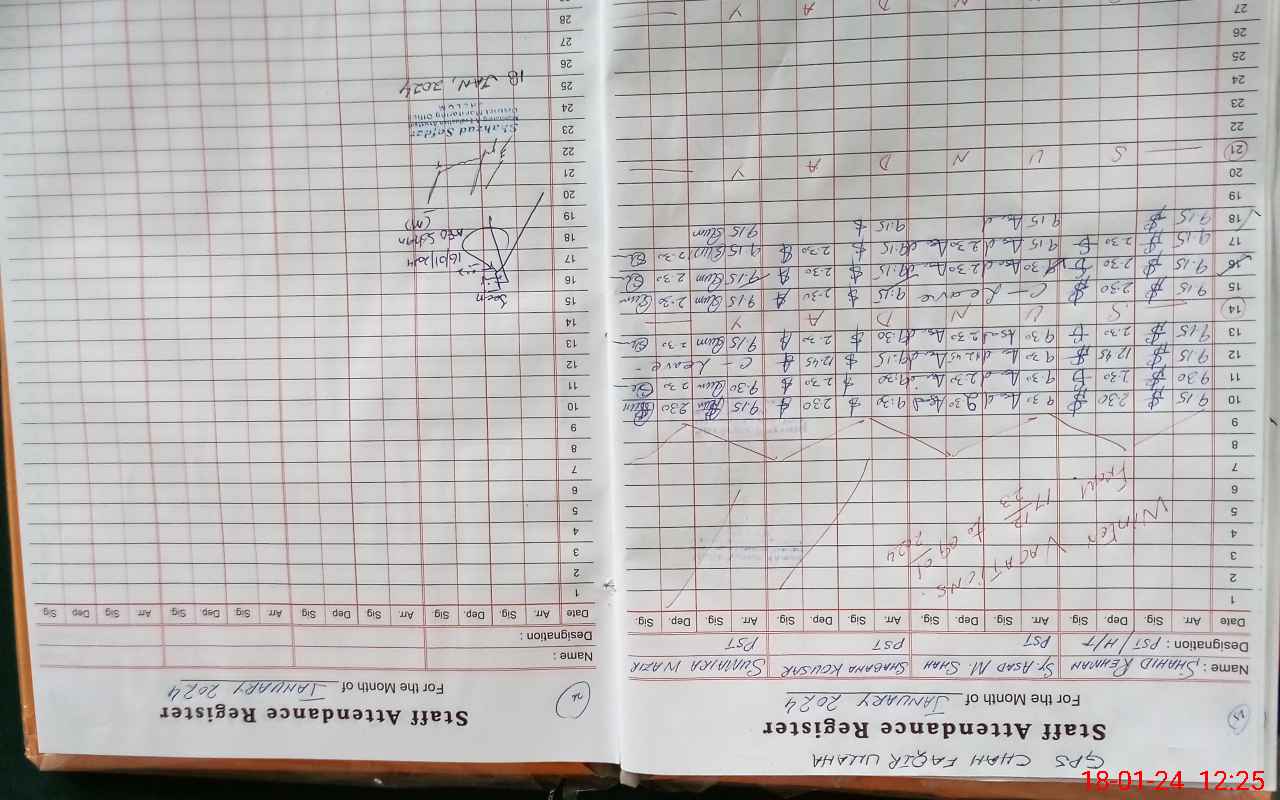 GPS CHAH FAQIR ULLAHA
Staff Attendance Register
For the Month of JANUARY 2024
Name: SHAHID REHMAN Sy ASAD M. SHAH SHABANA KOUSAR SUMAIRA NAZIR
Designation: PST / H/T PST PST PST
Date Arr. Sig. Dep. Sig. Arr. Sig. Dep. Sig. Arr. Sig. Dep. Sig. Arr. Sig. Dep. Sig.
1
2
3
4
5
6
7
8
9
WINTER VACATIONS
FROM 17/12/23 to 09/01/2024
10 9.15 2.30 9.30 2.30 9:30 2.30 9.15 2.30
11 9.30 2.30 9.30 2.30 9:30 2.30 9.30 2.30
12 9.15 12.45 9.30 12.45 9:15 12.45 C-Leave
13 9.15 2.30 9.30 2.30 9:30 2.30 9.15 2.30
14 S U N D A Y
15 9.15 2.30 C-Leave 9:15 2.30 9.15 2.30
16 9.15 2.30 9.30 2.30 9:15 2.30 9.15 2.30
17 9.15 2.30 9.15 2.30 9:15 2.30 9.15 12.30
18 9.15 9.15 9:15 9.15
19
20
21 S U N D A Y
22
23
24
25
26
27 D A Y
Staff Attendance Register
For the Month of JANUARY 2024
Name:
Designation:
Date Arr. Sig. Dep. Sig. Arr. Sig. Dep. Sig. Arr. Sig. Dep. Sig. Arr. Sig. Dep. Sig.
1
2
3
4
5
6
7
8
9
10
11
12
13
14
15
Seen
16
17
16/01/2024
18
19
(M)
20
21
22
23
Shahzad Safdar
24
25
18 JAN, 2024
26
27
28
18-01-24 12:25